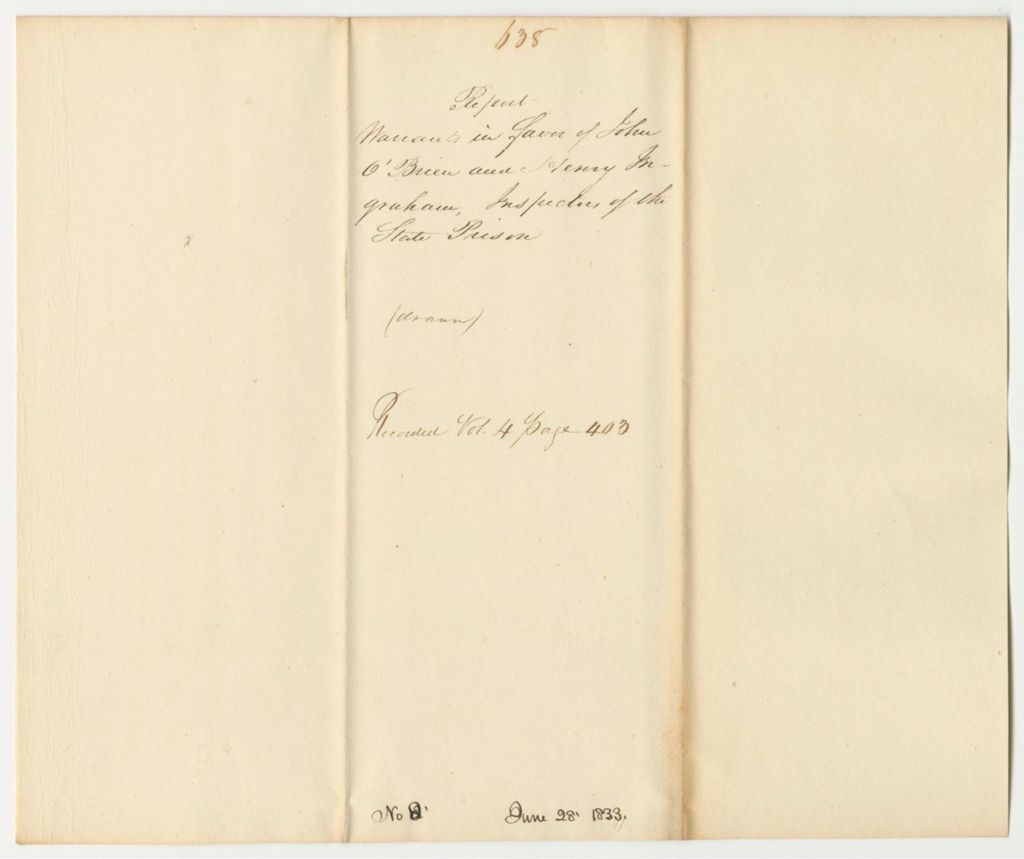 638
Report
Warrants in favor of John
O'Brien and Henry In-
graham, Inspectors of the
State Prison
(drawn)
Recorded Vol. 4 Page 403
No 8
June 28 1833.